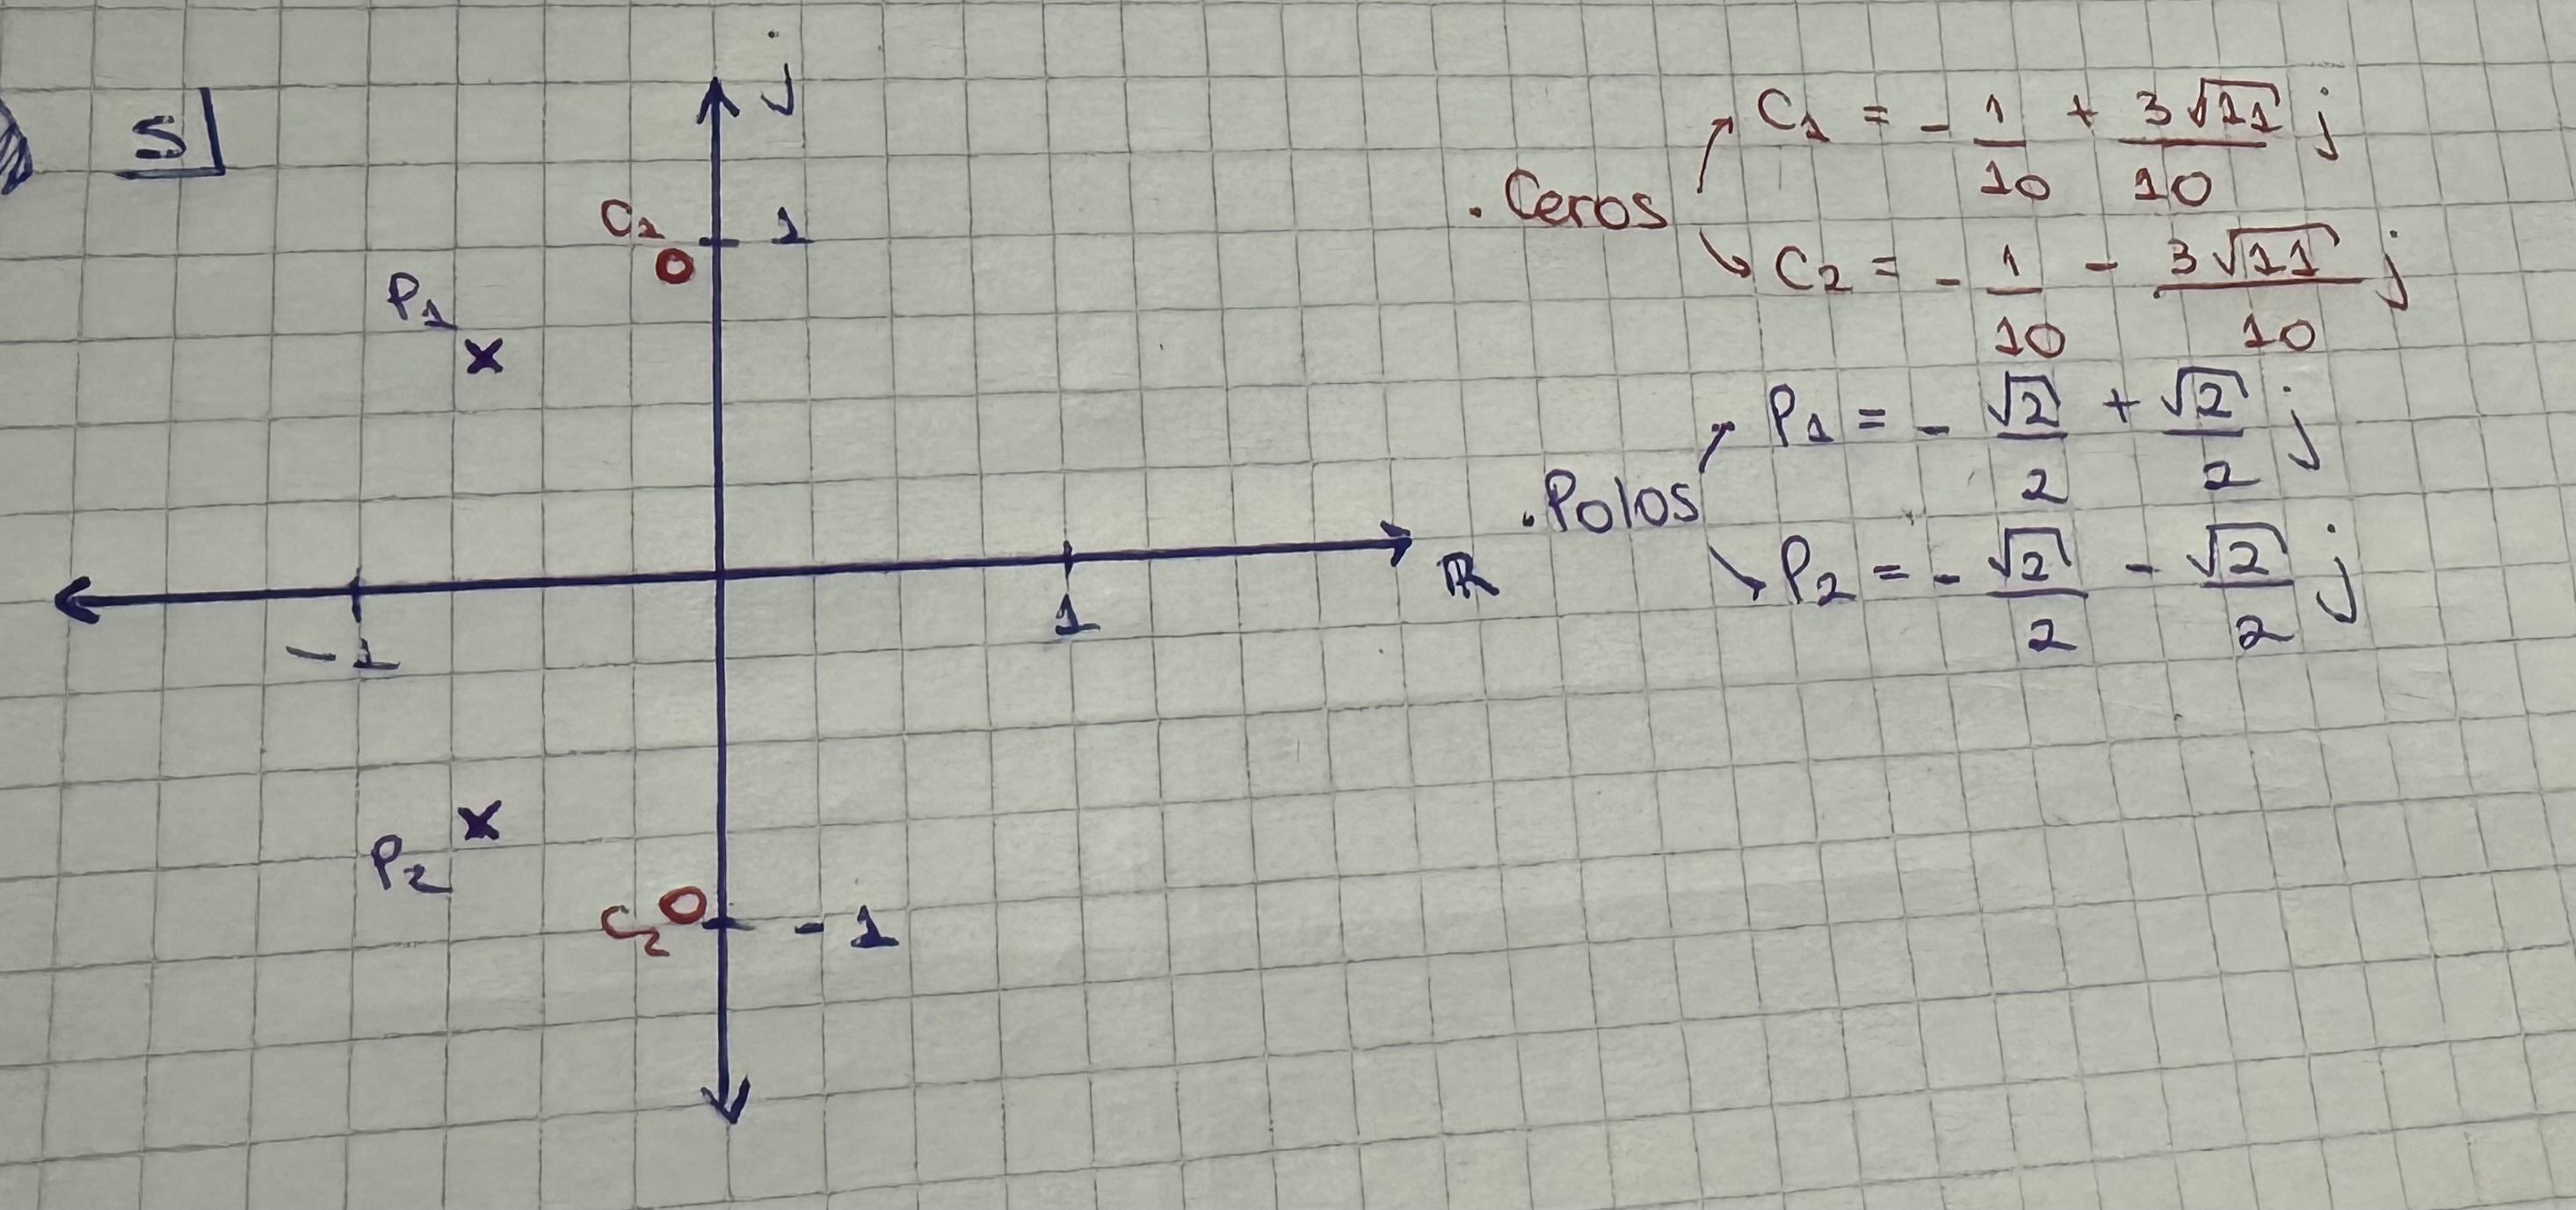 S
j
C1
1
P1
R
-1
1
P2
C2
-1
. Ceros
C1 = - 1/10 + 3√11/10 j
C2 = - 1/10 - 3√11/10 j
. Polos
P1 = - √2/2 + √2/2 j
P2 = - √2/2 - √2/2 j